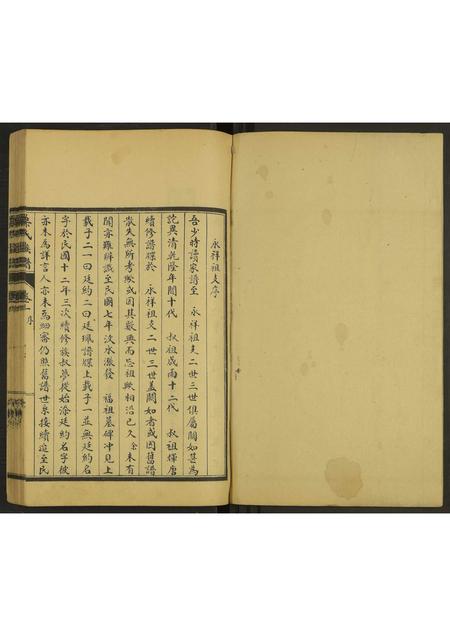 永祥祖支序
吾少時讀家譜至 永祥祖支二世三世俱屬闕如甚為
詫異清乾隆年間十代 叔祖咸雨十二代 叔祖 唐
續修譜牒於 永祥祖支二世三世蓋闕如者或因舊譜
散失無所考歟或因其數典而忘祖歟相沿已久余未有
聞亦難辨識至民國七年汶水漲發 福祖墓碑冲見上
載子二一曰廷約二曰廷珮譜牒上載子一並無廷約名
字於民國十二年三次續修族叔夢從始添廷約名字彼
亦未為詳言人亦未為細審仍照舊譜世系接續迨至民
氏族譜
卷 序